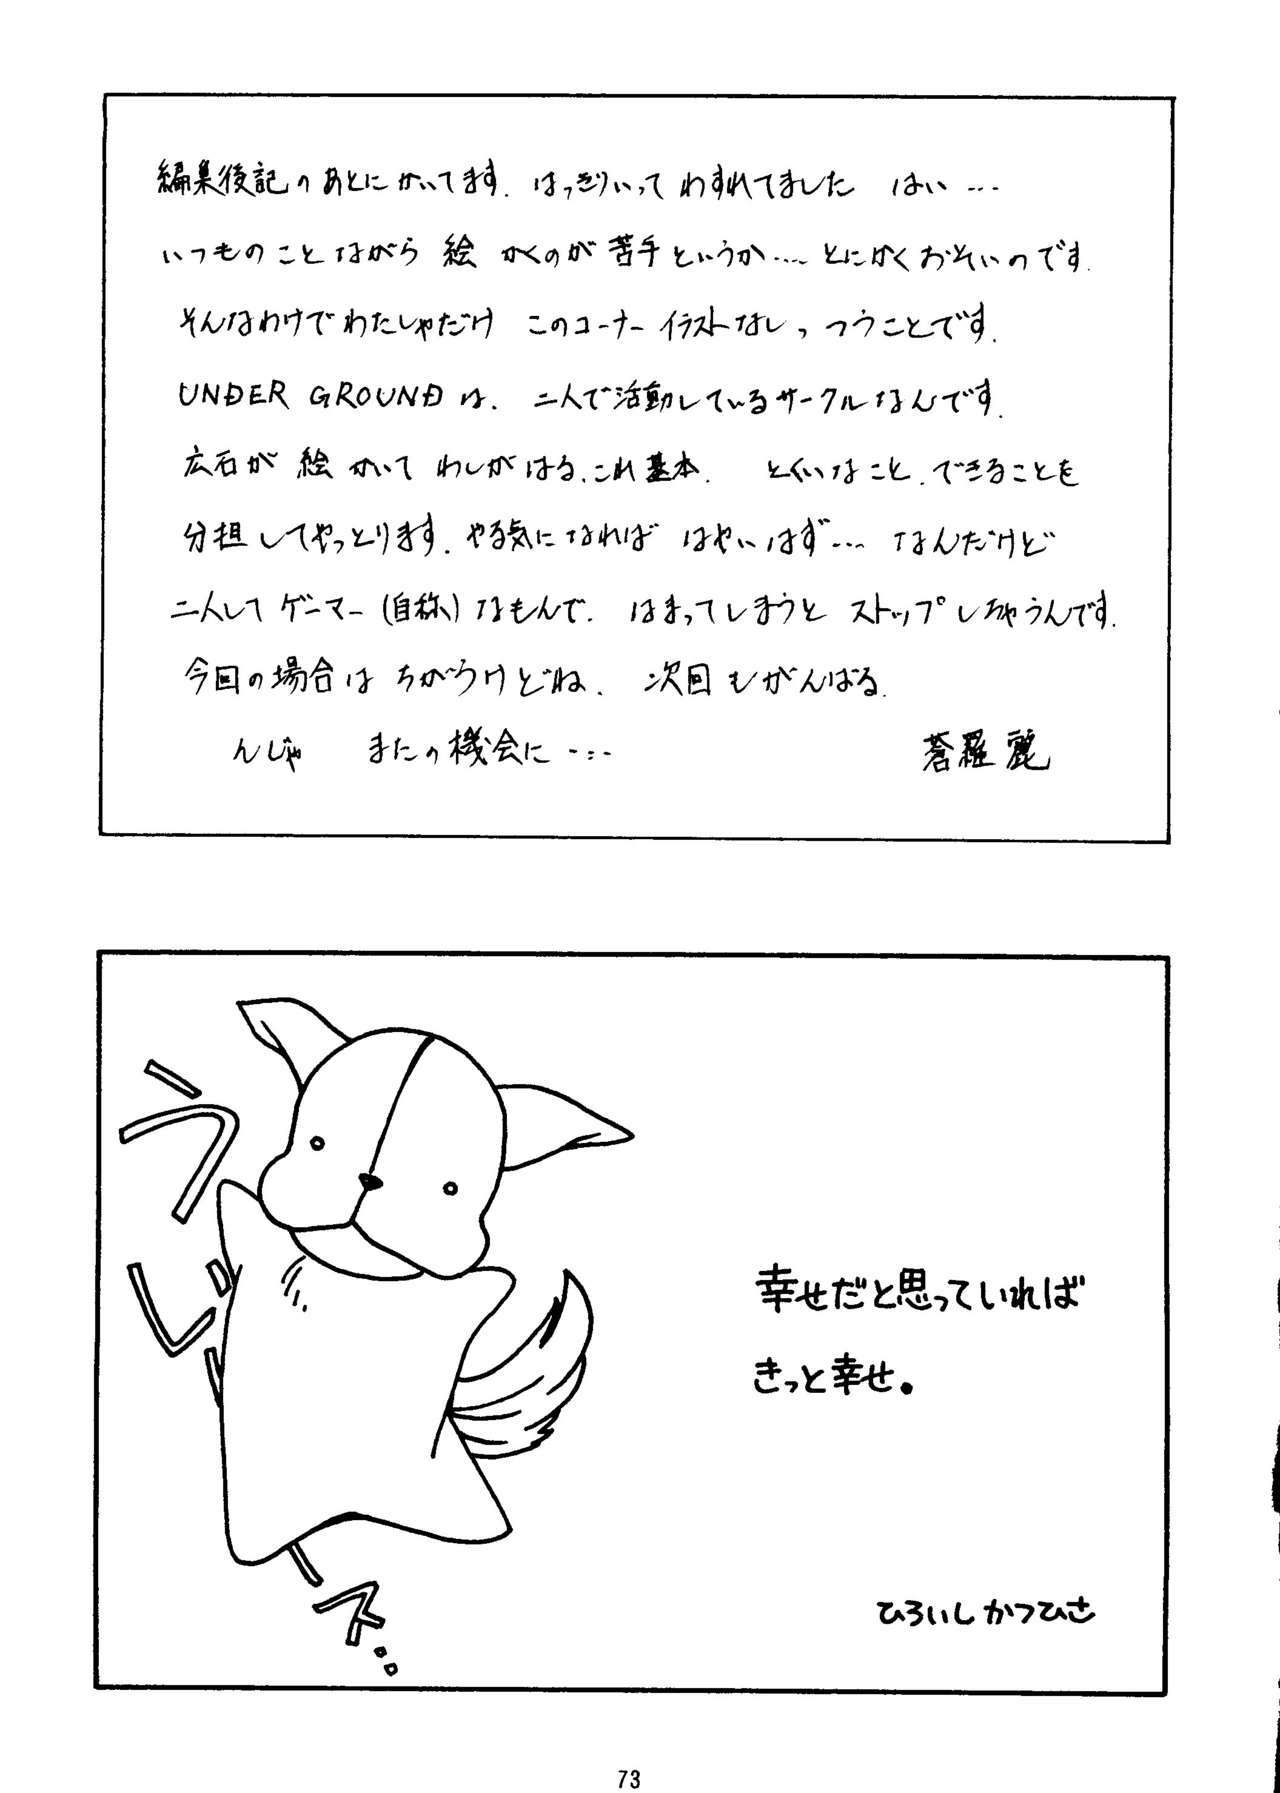 編集後記のあとにかいてます. はっきりいって わすれてました はい…
いつものことながら 絵 かくのが苦手というか…. とにかくおそいのです.
そんなわけでわたしゃだけ このコーナー イラストなしっつうことです.
UNDER GROUNDは、二人で活動しているサークルなんです.
広石が 絵 かいて わしがはる、これ基本. とくいなこと、できることを
分担してやっとります. やる気になれば はやいはず… なんだけど
二人してゲーマー(自称)なもんで. はまってしまうと ストップしちゃうんです.
今回の場合は ちがうけどね、 次回もがんばる.
んじゃ またの機会に…
蒼羅 麗
幸せだと思っていれば
きっと幸せ。
ひろいしかつひさ
73